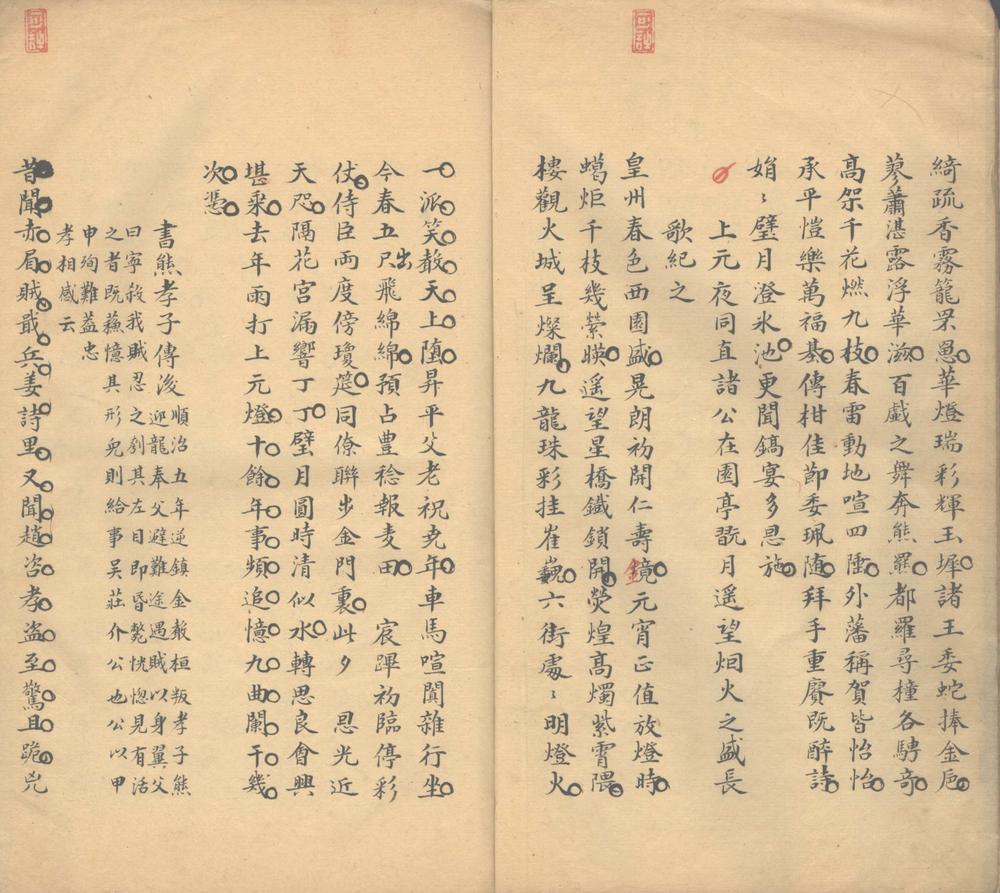 綺疏香霧籠罘罳華燈瑞彩輝玉墀諸王委蛇捧金卮
蓼蕭湛露浮華滋百戲之舞奔熊羆都羅尋橦各騁奇
高架千花燃九枝春雷動地喧四陲外藩稱賀皆怡怡
承平愷樂萬福綦傳柑佳節委珮随拜手重賡既醉詩
娟〻璧月澄氷池更聞鎬宴多恩施
上元夜同直諸公在園亭翫月遥望烟火之盛長
歌紀之
皇州春色西園盛晃朗初開仁壽鏡元宵正值放燈時
蠟炬千枝幾縈暎遥望星橋鐵鎖開熒煌高燭紫霄隈
樓觀火城呈燦爛九龍珠彩挂崔巍六街處〻明燈火
一派笑聲天上墮昇平父老祝尭年車馬喧闐雜行坐
今春五尺出飛綿綿預占豊稔報麦田宸蹕初臨停彩
仗侍臣兩度傍瓊筵同僚聯步金門裏此夕恩光近
天咫隔花宮漏響丁丁璧月圓時清似水轉思良會興
堪乘去年雨打上元燈十餘年事頻追憶九曲闌干幾
次憑
書熊孝子傳後
順治五年逆鎮金聲桓叛孝子熊
迎龍奉父避難途遇賊以身翼父
曰寧殺我賊忍之刳其左目即昏斃恍惚見有活
之者既蘇憶其形皃則給事吳莊介公也公以甲
申殉難蓋忠
孝相感云
昔聞赤眉賊戢兵姜詩里又聞趙咨孝盗至驚且跪兇